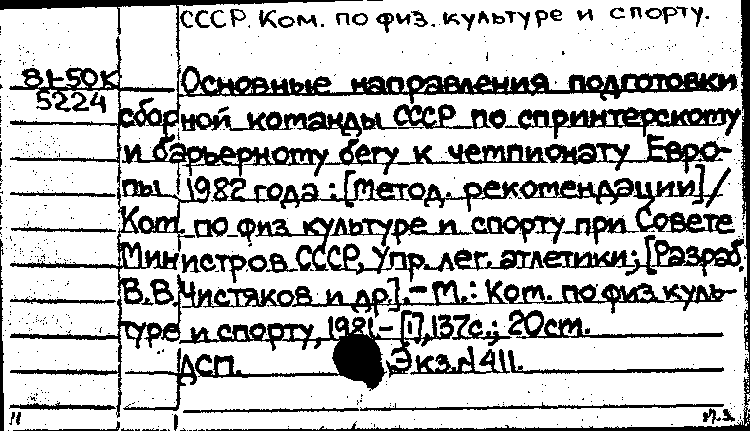 СССР. Ком. по физ. культуре и спорту.
81-50К
5224
Основные направления подготовки
сборной команды СССР по спринтерскому
и барьерному бегу к чемпионату Евро-
пы 1982 года: [Метод. рекомендации]/
Ком. по физ культуре и спорту при Совете
Министров СССР, Упр. лег. атлетики; [Разраб.
В.В. Чистяков и др]. - М.: Ком. по физ куль-
туре и спорту, 1981 - [1], 137с.; 20см.
ДСП. Экз. № 411.